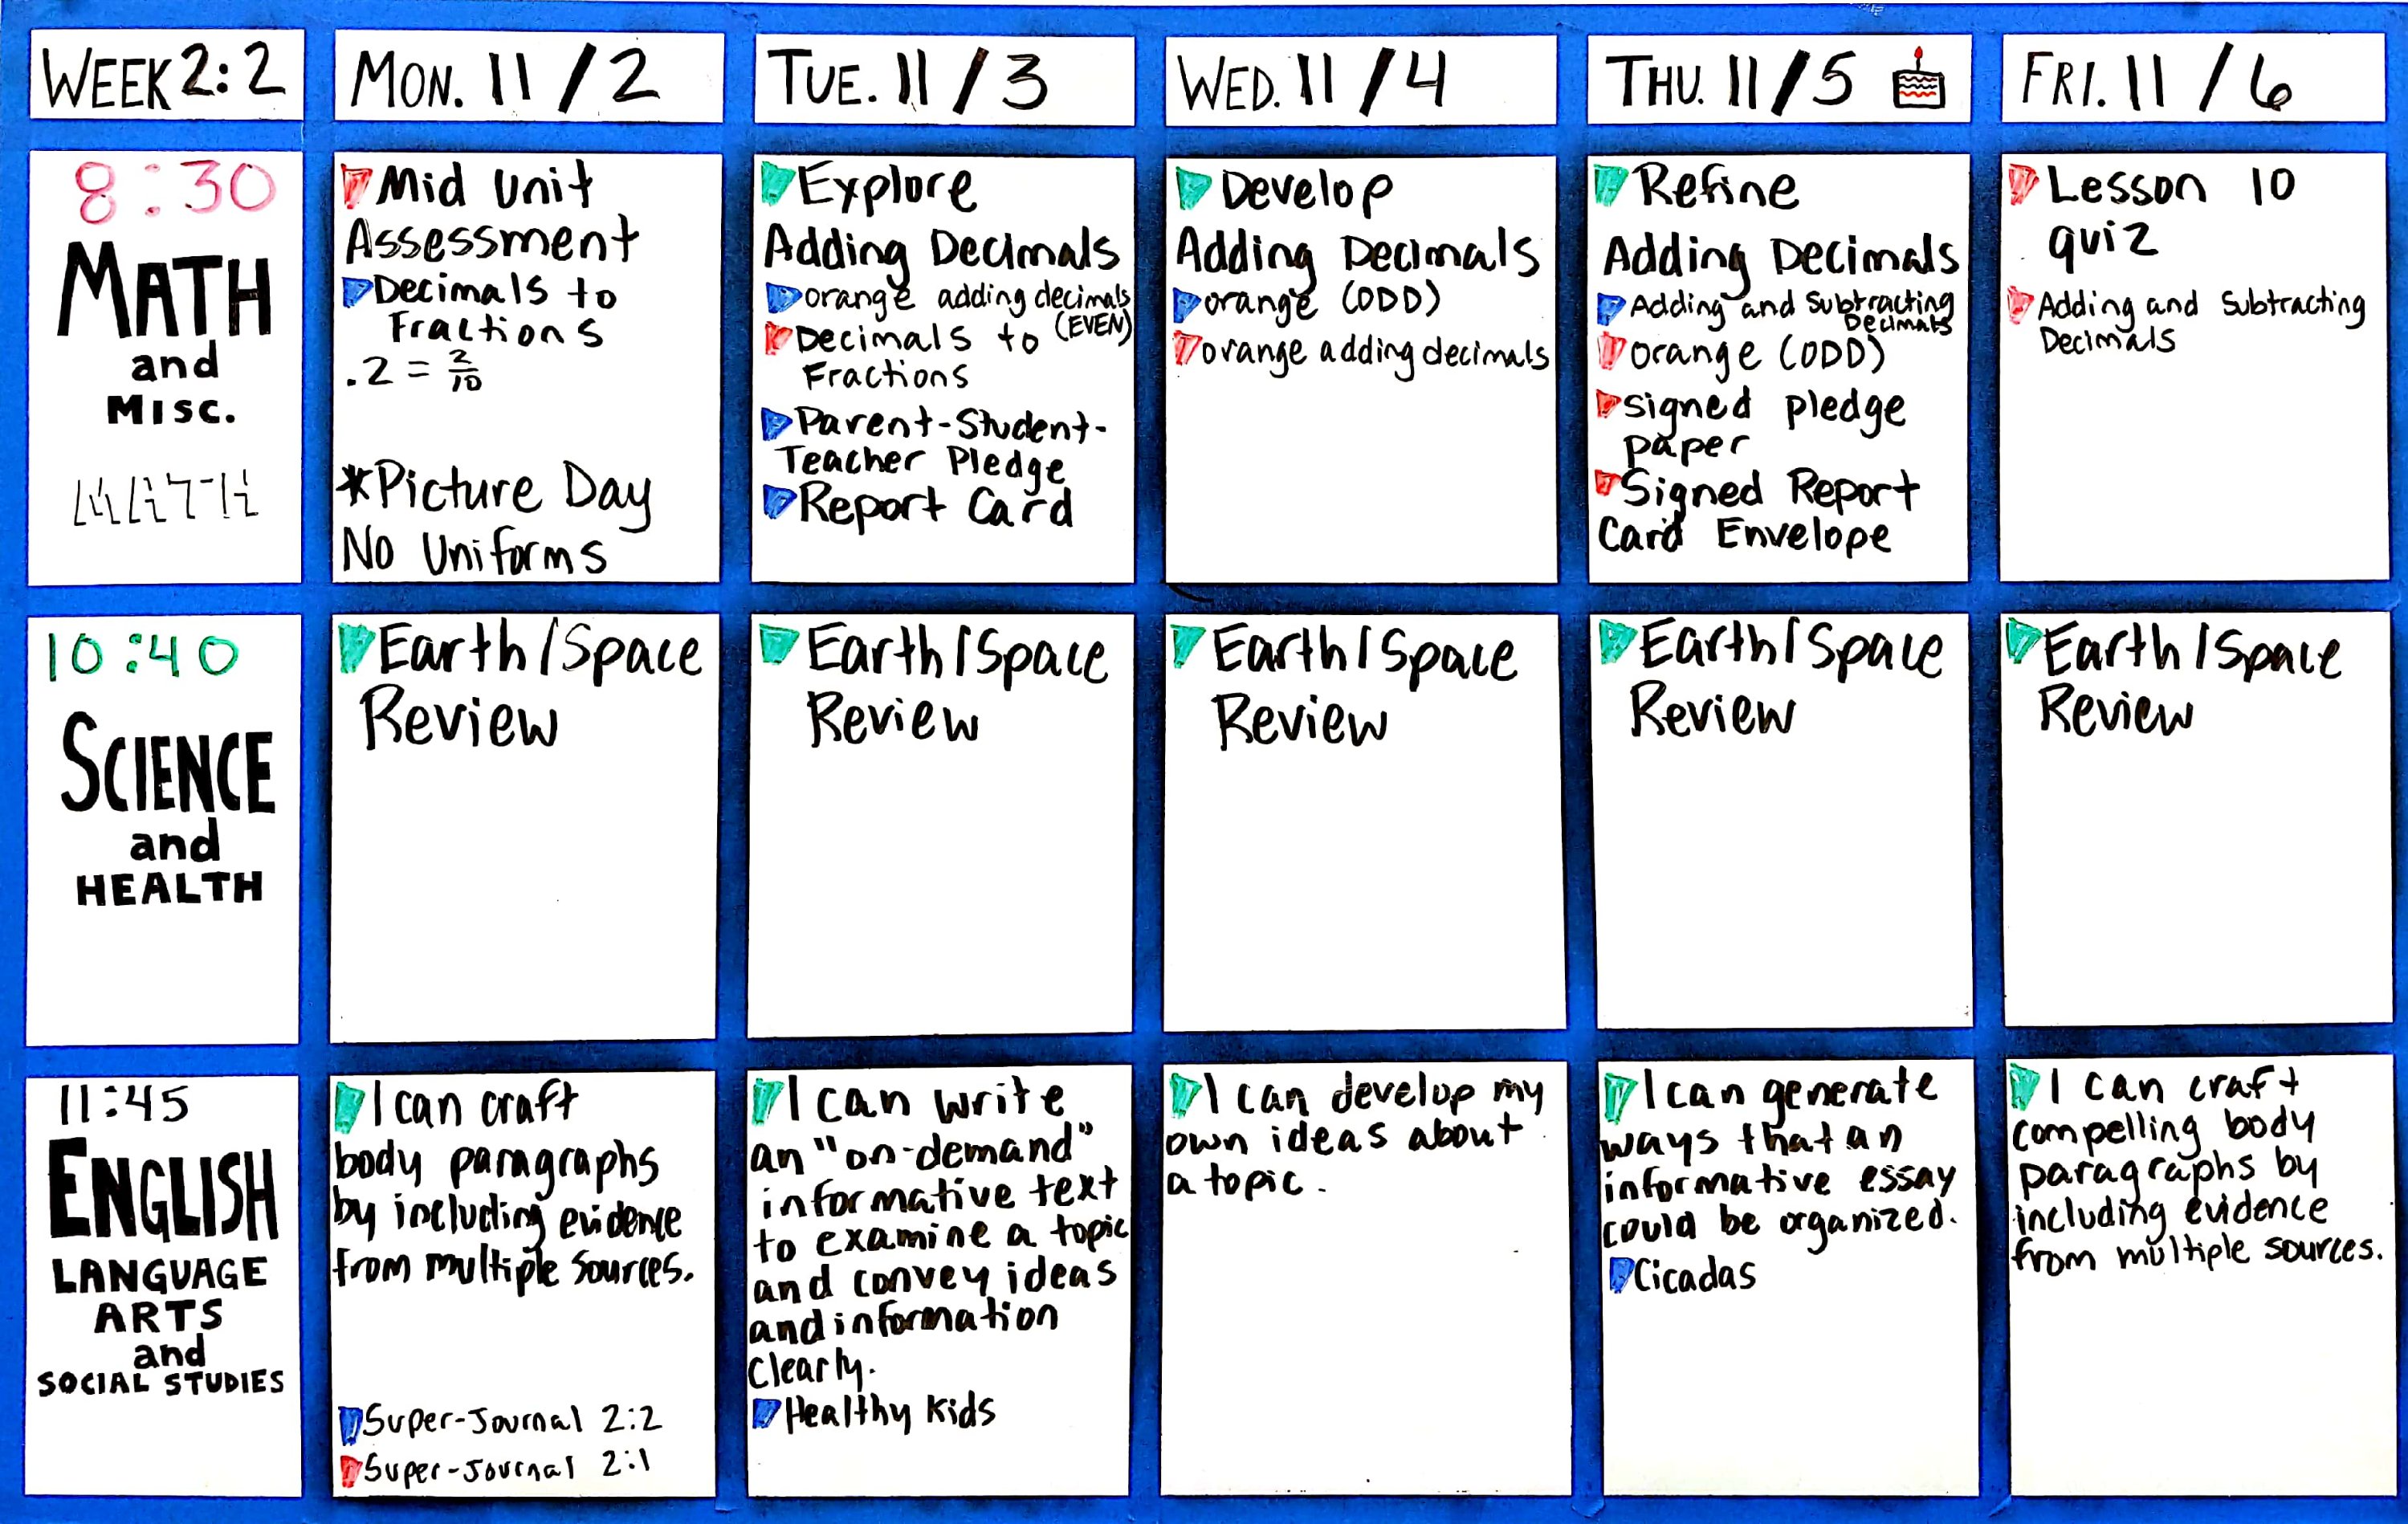 WEEK 2:2
MON. 11/2
TUE. 11/3
WED. 11/4
THU. 11/5
FRI. 11/6
8:30
MATH
and
MISC.
MATH
Mid Unit
Assessment
Decimals to
Fractions
.2 = 2/10
*Picture Day
No Uniforms
Explore
Adding Decimals
orange adding decimals
(EVEN)
Decimals to
Fractions
Parent-Student-
Teacher Pledge
Report Card
Develop
Adding Decimals
orange (ODD)
orange adding decimals
Refine
Adding Decimals
Adding and Subtracting
Decimals
orange (ODD)
signed pledge
paper
Signed Report
Card Envelope
Lesson 10
quiz
Adding and Subtracting
Decimals
10:40
SCIENCE
and
HEALTH
Earth/Space
Review
Earth/Space
Review
Earth/Space
Review
Earth/Space
Review
Earth/Space
Review
11:45
ENGLISH
LANGUAGE
ARTS
and
SOCIAL STUDIES
I can craft
body paragraphs
by including evidence
from multiple sources.
Super-Journal 2:2
Super-Journal 2:1
I can write
an "on-demand"
informative text
to examine a topic
and convey ideas
and information
clearly.
Healthy Kids
I can develop my
own ideas about
a topic.
I can generate
ways that an
informative essay
could be organized.
Cicadas
I can craft
compelling body
paragraphs by
including evidence
from multiple sources.